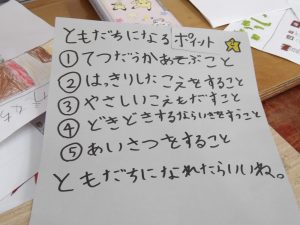 ともだちになるポイント
①てつだうかあそぶこと
②はっきりしたこえをすること
③やさしいこえもだすこと
④どきどきするならいきをすうこと
⑤あいさつをすること
ともだちになれたらいいね。